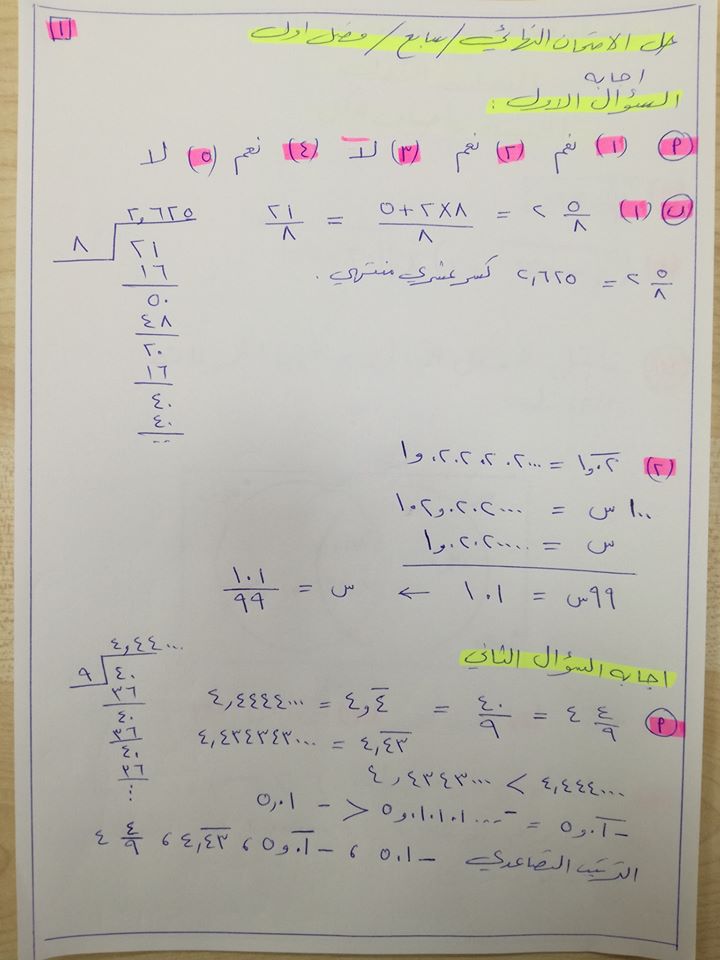 ١
حل الامتحان النهائي / سابع / فصل اول
اجابه
السؤال الاول :
P (١) نعم (٢) نعم (٣) لا (٤) نعم (٥) لا
ب (١) ٢ ٥/٨ = ٥+٢×٨/٨ = ٢١/٨
٢ ٥/٨ = ٢,٦٢٥ كسر عشري منتهي .
٢,٦٢٥
٨ ٢١
١٦
٥٠
٤٨
٢٠
١٦
٤٠
٤٠
٠٠
(٢) ١,٠٢ = ١,٠٢٠٢٠٢٠٢...
١٠٠ س = ١٠٢,٠٢٠٢...
س = ١,٠٢٠٢...
٩٩س = ١٠١ ← س = ١٠١/٩٩
اجابه السؤال الثاني
P ٤ ٤/٩ = ٤٠/٩ = ٤,٤ = ٤,٤٤٤٤...
٤,٤٣ = ٤,٤٣٤٣٤٣...
٤,٤٤٤... > ٤,٤٣٤٣...
-٥,٠١ = -٥,٠١٠١٠١... > -٥,٠١
الترتيب التصاعدي -٥,٠١ ، -٥,٠١ ، ٤,٤٣ ، ٤ ٤/٩
٤,٤٤...
٩ ٤٠
٣٦
٤٠
٣٦
٤٠
٣٦